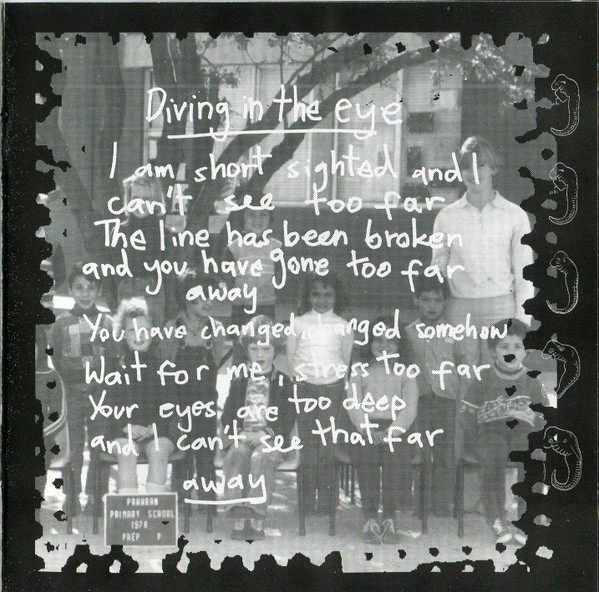 Diving in the eye
I am short sighted and I
can't see too far
The line has been broken
and you have gone too far
away
You have changed, changed somehow
Wait for me, stress too far
Your eyes are too deep
and I can't see that far
away
PRAHRAN
PRIMARY SCHOOL
1978
PREP P